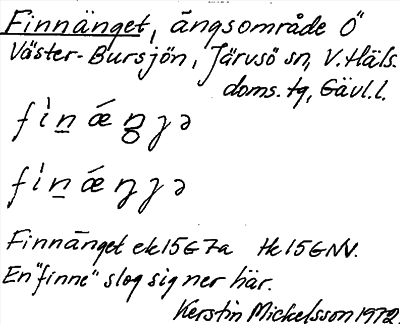 Finnänget, ängsområde O"
Väster-Bursjön, Järvsö sn, V. Häls.
doms. tg, Gävl. l.
Finnänget ek 15G7a Hk 15GNV.
En "finne" slog sig ner här.
Kerstin Mickelsson 1972.